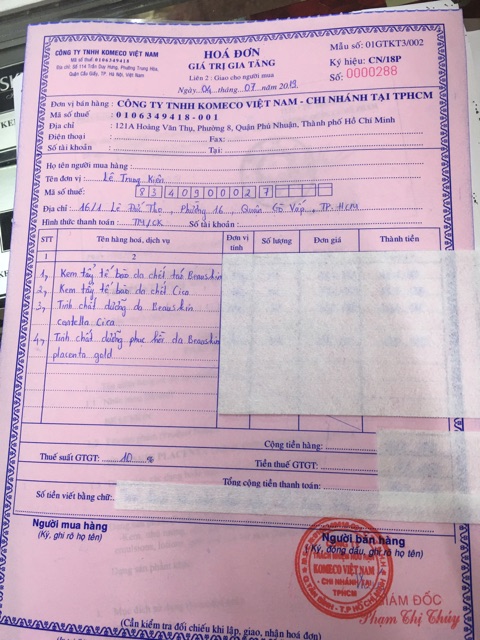 CÔNG TY TNHH KOMECO VIỆT NAM
Mã số thuế: 0106349418
Địa chỉ: Số 114 Trần Duy Hưng, Phường Trung Hòa,
Quận Cầu Giấy, TP. Hà Nội, Việt Nam
HOÁ ĐƠN
GIÁ TRỊ GIA TĂNG
Liên 2: Giao cho người mua
Ngày 04 tháng 07 năm 2019
Mẫu số: 01GTKT3/002
Ký hiệu: CN/18P
Số: 0000288
Đơn vị bán hàng: CÔNG TY TNHH KOMECO VIỆT NAM - CHI NHÁNH TẠI TPHCM
Mã số thuế : 0106349418-001
Địa chỉ : 121A Hoàng Văn Thụ, Phường 8, Quận Phú Nhuận, Thành phố Hồ Chí Minh
Điện thoại : Fax:
Số tài khoản : Tại:
Họ tên người mua hàng:
Tên đơn vị: Lê Trung Kiên
Mã số thuế: 8340900027
Địa chỉ: 16/1 Lê Đức Thọ, Phường 16, Quận Gò Vấp, TP.HCM
Hình thức thanh toán: TM/CK Số tài khoản:
STT Tên hàng hoá, dịch vụ Đơn vị tính Số lượng Đơn giá Thành tiền
1 2
1, Kem tẩy tế bào da chết Beauskin
2, Kem tẩy tế bào da chết Cica
3, Tinh chất dưỡng da Beauskin
centella Cica
4, Tinh chất dưỡng phục hồi da Beauskin
placenta gold
Cộng tiền hàng:
Thuế suất GTGT: 10 % Tiền thuế GTGT:
Tổng cộng tiền thanh toán:
Số tiền viết bằng chữ:
Người mua hàng
(Ký, ghi rõ họ tên)
Người bán hàng
(Ký, đóng dấu, ghi rõ họ tên)
KOMECO VIỆT NAM
- CHI NHÁNH TẠI
TPHCM
GIÁM ĐỐC
Phạm Thị Thúy
(Cần kiểm tra đối chiếu khi lập, giao, nhận hoá đơn)